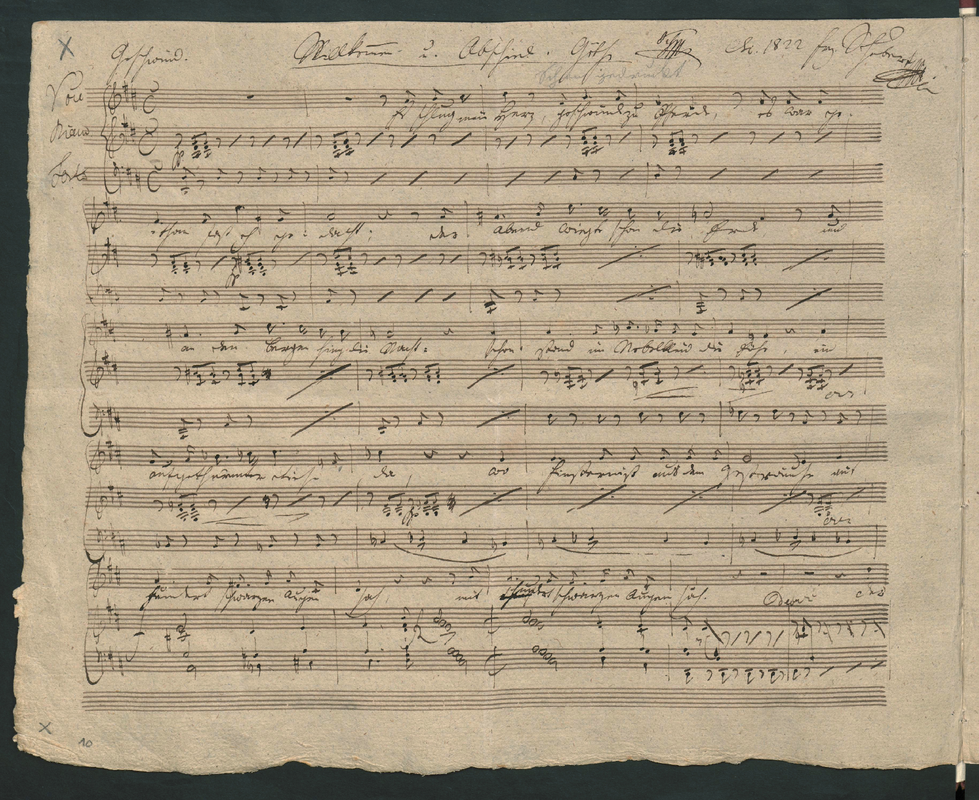 Geschwind. Willkomm u. Abschied. Göthe Dec. 1822 Frz. Schubert
schon gedruckt
Voce
Piano
Forte
Es schlug mein Herz, geschwind zu Pferde, es war ge-
pp
schon fast eh ge- dacht; der Abend wiegte schon die Erde und
an den Bergen hing die Nacht. schon stand im Nebelkleid die Eiche, ein
cresc
aufgethürmter Riese da, wo Finsterniß aus dem Gesträuche mit
cresc
hundert schwarzen Augen sah, mit hundert schwarzen Augen sah. Der
10